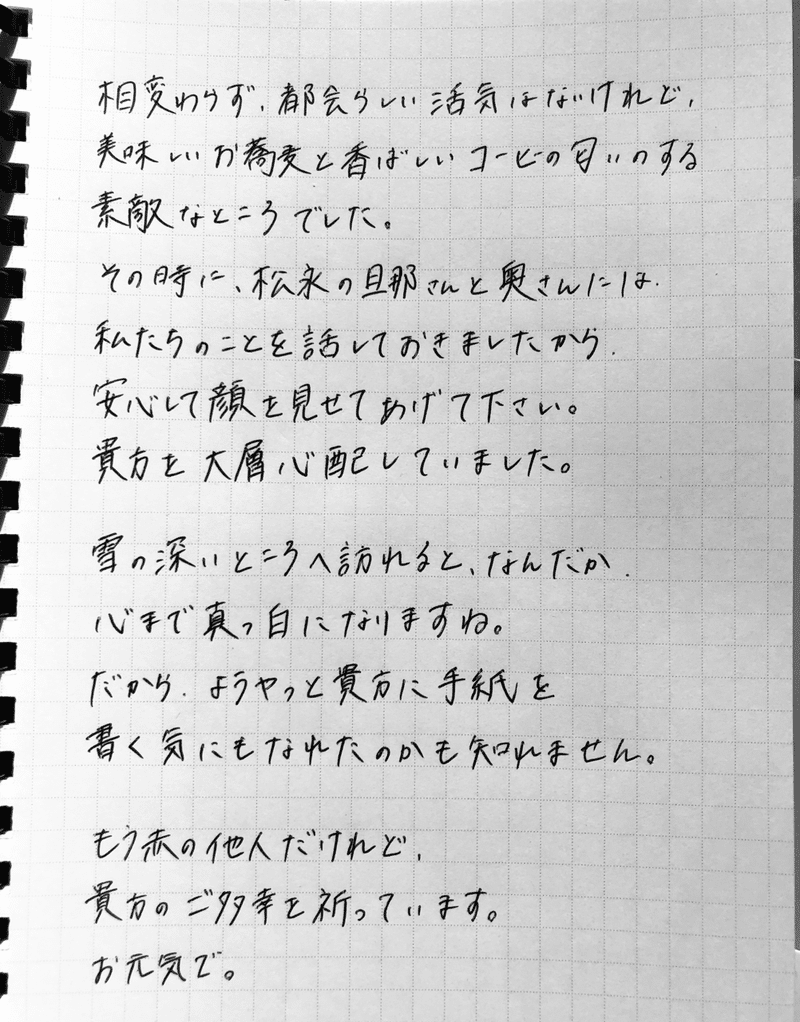 相変わらず、都会らしい活気はないけれど、
美味しいお蕎麦と香ばしいコーヒーの匂いのする
素敵なところでした。
その時に、松永の旦那さんと奥さんには、
私たちのことを話しておきましたから、
安心して顔を見せてあげて下さい。
貴方を大層心配していました。
雪の深いところへ訪れると、なんだか、
心まで真っ白になりますね。
だから、ようやっと貴方に手紙を
書く気にもなれたのかも知れません。
もう赤の他人だけれど、
貴方のご多幸を祈っています。
お元気で。